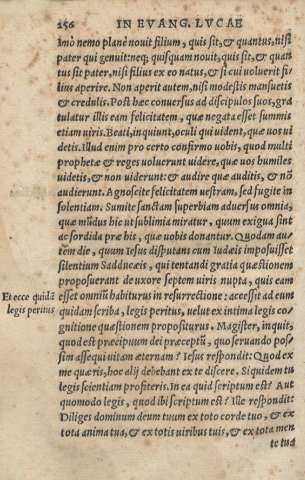 256 IN EVANG. LVCAE
imò nemo planè novit filium, quis sit, & quantus, nisi
pater qui genuit: neq; quisquam novit, quis sit, & quan
tus sit pater, nisi filius ex eo natus, & si cui voluerit fi-
lius aperire. Non aperit autem, nisi modestis mansuetis
& credulis. Post hæc conversus ad discipulos suos, gra
tulatur illis eam felicitatem, quæ negata esset summis
etiam viris. Beati, inquiunt, oculi qui vident, quæ vos ui
detis. Illud enim pro certo confirmo vobis, quod multi
prophetæ & reges voluerunt uidere, quæ vos humiles
uidetis, & non viderunt: & audire quæ auditis, & nō
audierunt. Agnoscite felicitatem vestram, sed fugite in
solentiam. Sumite sanctam superbiam adversus omnia,
quæ mūdus hic ut sublimia miratur, quum exigua sint
ac sordida præ his, quæ vobis donantur. Quodam au-
tēm die, quum Iesus disputans cum Iudæis imposuisset
silentium Sadducæis, qui tentandi gratia quæstionem
proposuerant de uxore septem viris nupta, quis eam
Et ecce quidā esset omniū habiturus in resurrectione: accessit ad eum
legis peritus quidam scriba, legis peritus, velut ex intima legis co-
gnitione quæstionem propositurus. Magister, inquit,
quod est præcipuum dei præceptū, quo servando pos-
sim assequi vitam æternam? Iesus respondit: Quod ex
me quæris, hoc alij debebant ex te discere. Siquidem tu
legis scientiam profiteris. In ea quid scriptum est? Aut
quomodo legis, quod ibi scriptum est? Ille respondit:
Diliges dominum deum tuum ex toto corde tuo, & ex
tota anima tua, & ex totis viribus tuis, & ex tota men
te tua